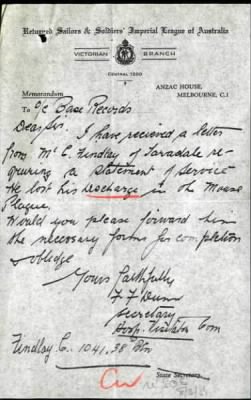 Returned Sailors & Soldiers' Imperial League of Australia
VICTORIAN BRANCH
CENTRAL 7200
ANZAC HOUSE,
MELBOURNE, C.1
Memorandum
To O/C Base Records
Dear Sir. I have received a letter
from Mr C. Findlay of Taradale re-
quiring a Statement of Service
He lost his Discharge in the Mouse
Plague.
Would you please forward him
the necessary forms for completion
& oblige
Yours faithfully
F F Dunn
Secretary
Hosp. Visitation Com
Findlay C. 1041, 38 Btn
State Secretary